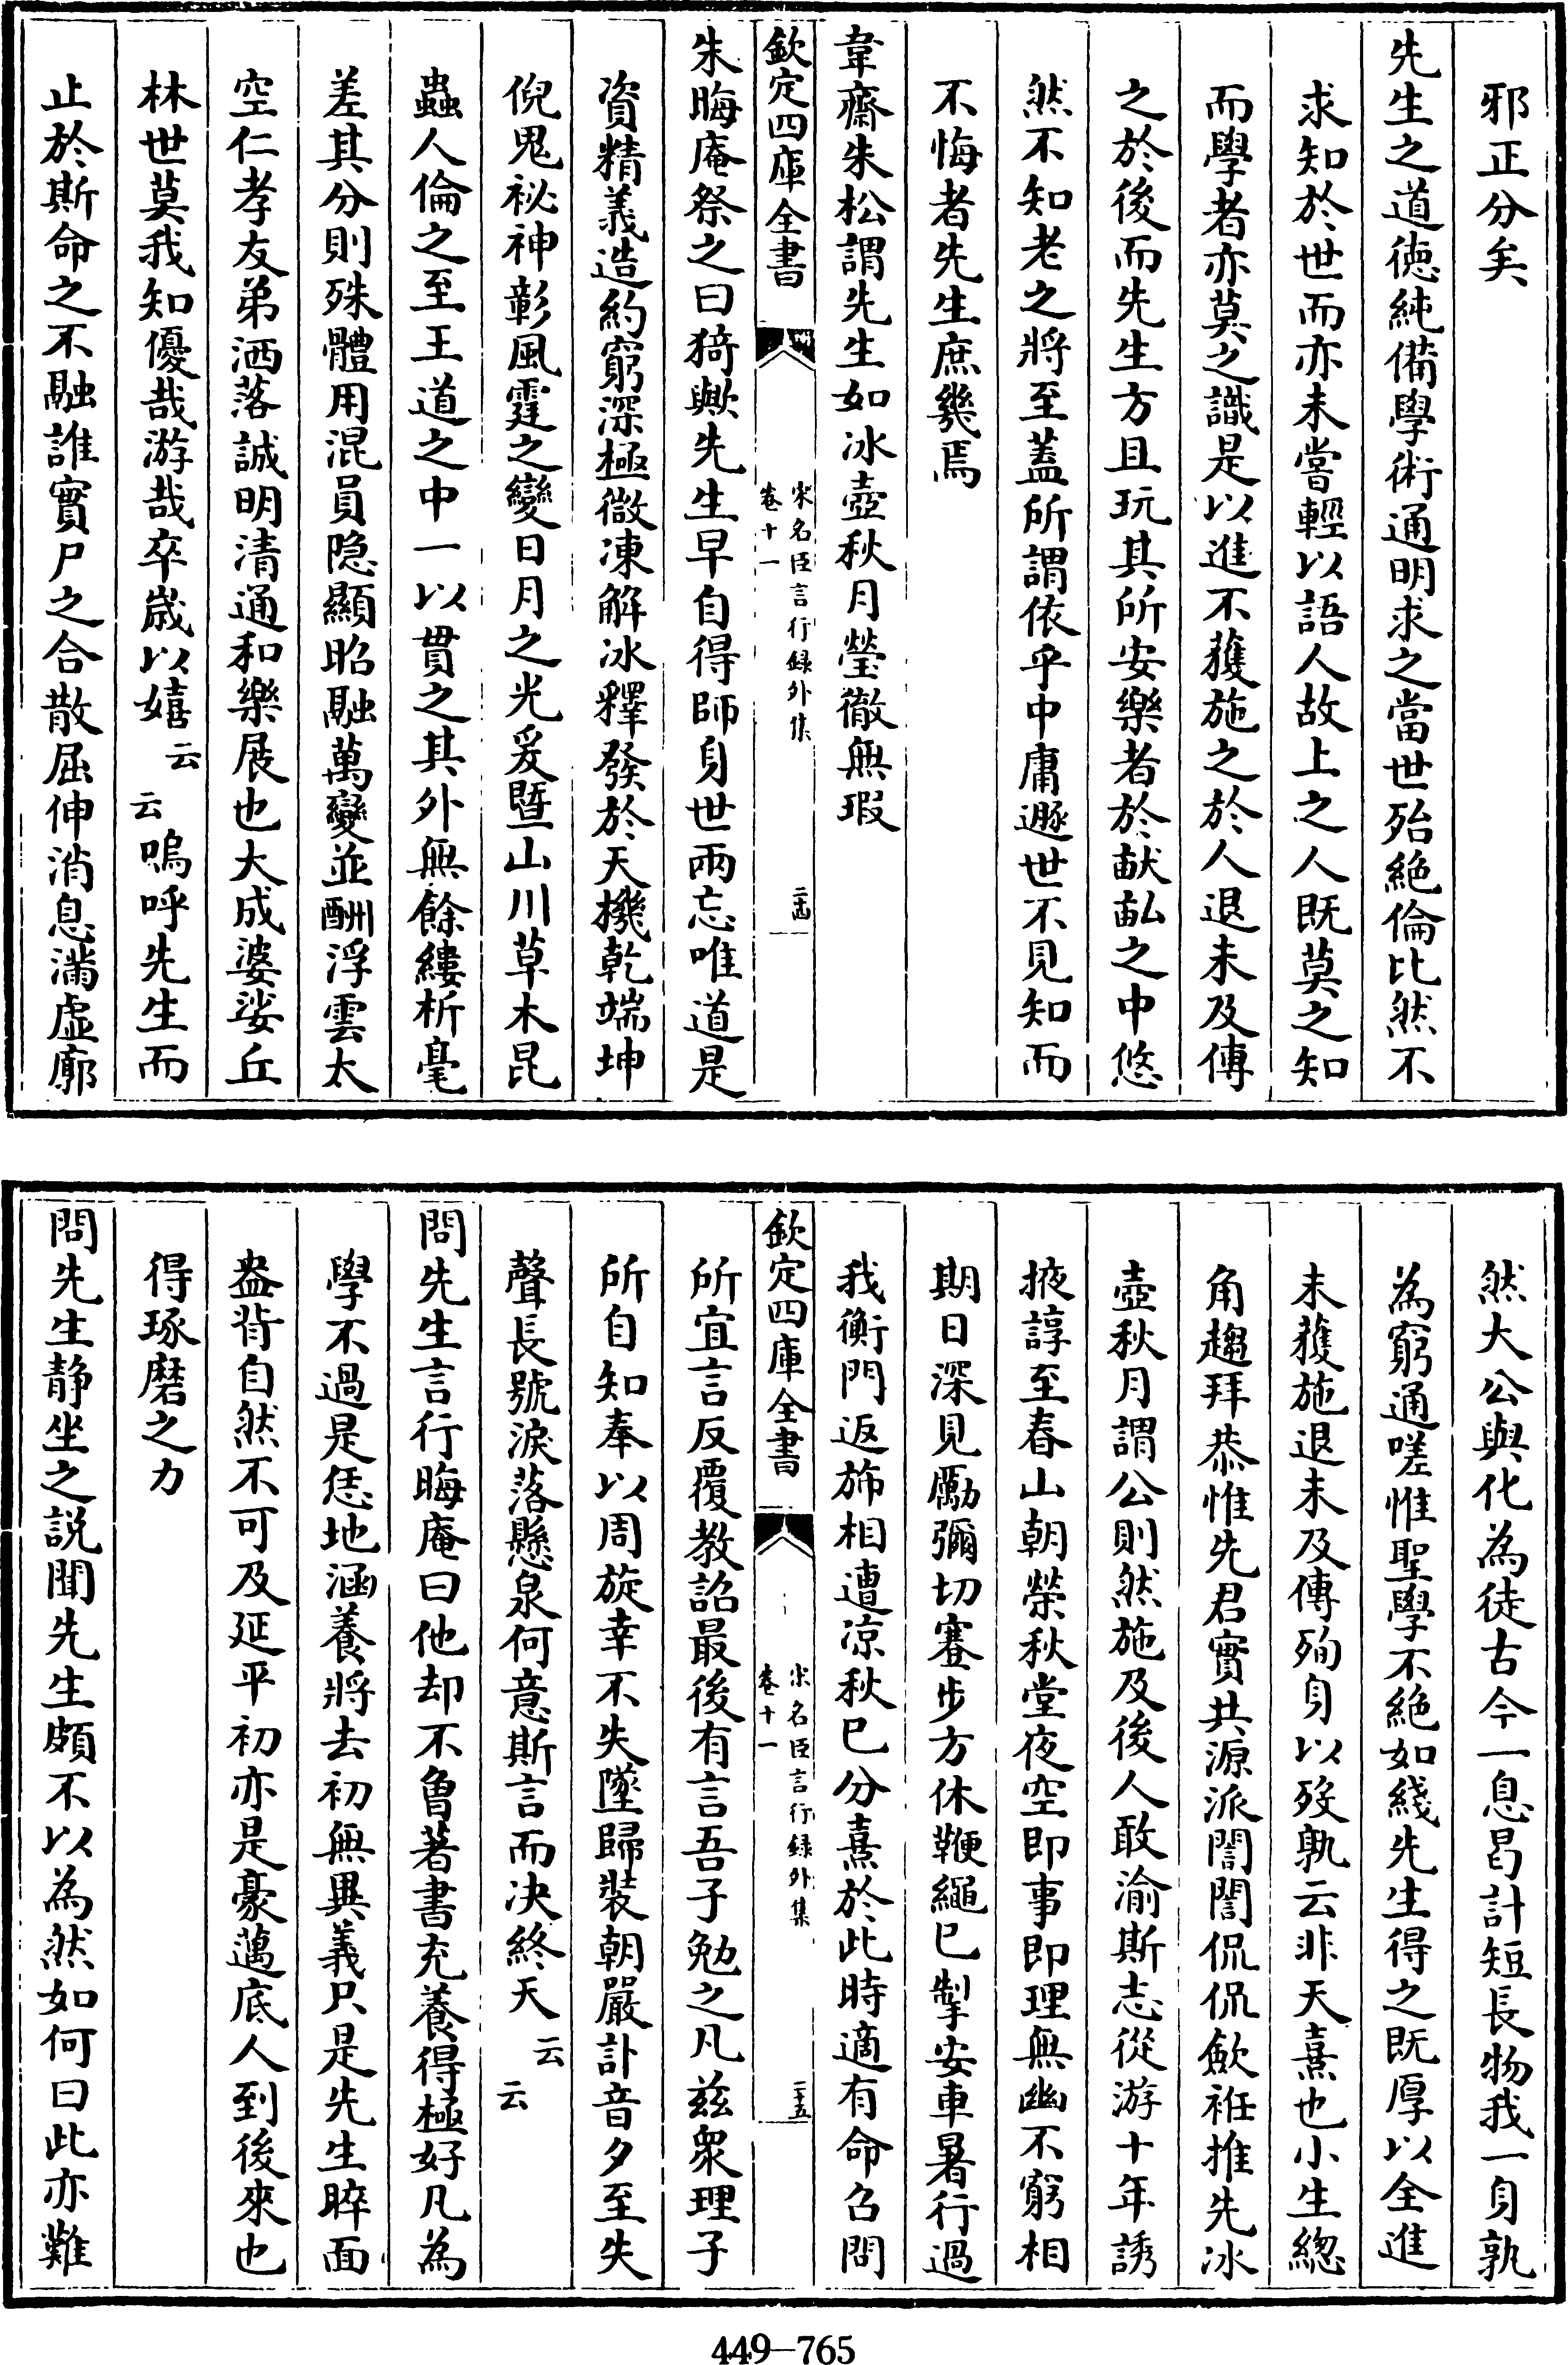 邪正分矣
先生之道徳純備學術通明求之當世殆絶倫比然不
求知於世而亦未嘗輕以語人故上之人既莫之知
而學者亦莫之識是以進不獲施之於人退未及傳
之於後而先生方且玩其所安樂者於畎畝之中悠
然不知老之將至蓋所謂依乎中庸遯世不見知而
不悔者先生庶幾焉
韋齋朱松謂先生如冰壺秋月瑩徹無瑕
欽定四庫全書
宋名臣言行録外集
卷十一
二十四
朱晦庵祭之曰猗歟先生早自得師身世兩忘唯道是
資精義造約窮深極微凍解冰釋發於天機乾端坤
倪鬼祕神彰風霆之變日月之光爰暨山川草木昆
蟲人倫之至王道之中一以貫之其外無餘縷析毫
差其分則殊體用混員隐顯昭融萬變並酬浮雲太
空仁孝友弟洒落誠明清通和樂展也大成婆娑丘
林世莫我知優哉游哉卒嵗以嬉云云嗚呼先生而
止於斯命之不融誰實尸之合散屈伸消息滿虚廓
然大公與化為徒古今一息曷計短長物我一身孰
為窮通嗟惟聖學不絶如綫先生得之既厚以全進
未獲施退未及傳殉身以歿孰云非天熹也小生緫
角趨拜恭惟先君實共源派誾誾侃侃斂衽推先冰
壺秋月謂公則然施及後人敢渝斯志從游十年誘
掖諄至春山朝榮秋堂夜空即事即理無幽不窮相
期日深見勵彌切蹇步方休鞭繩已掣安車暑行過
我衡門返斾相遭凉秋已分熹於此時適有命召問
欽定四庫全書
宋名臣言行録外集
卷十一
二十五
所宜言反覆教詔最後有言吾子勉之凡兹衆理子
所自知奉以周旋幸不失墜歸裝朝嚴訃音夕至失
聲長號淚落懸泉何意斯言而决終天云云
問先生言行晦庵曰他却不曾著書充養得極好凡為
學不過是恁地涵養將去初無異義只是先生睟面
盎背自然不可及延平初亦是豪邁底人到後來也
得琢磨之力
問先生静坐之説聞先生頗不以為然如何曰此亦難
449—765